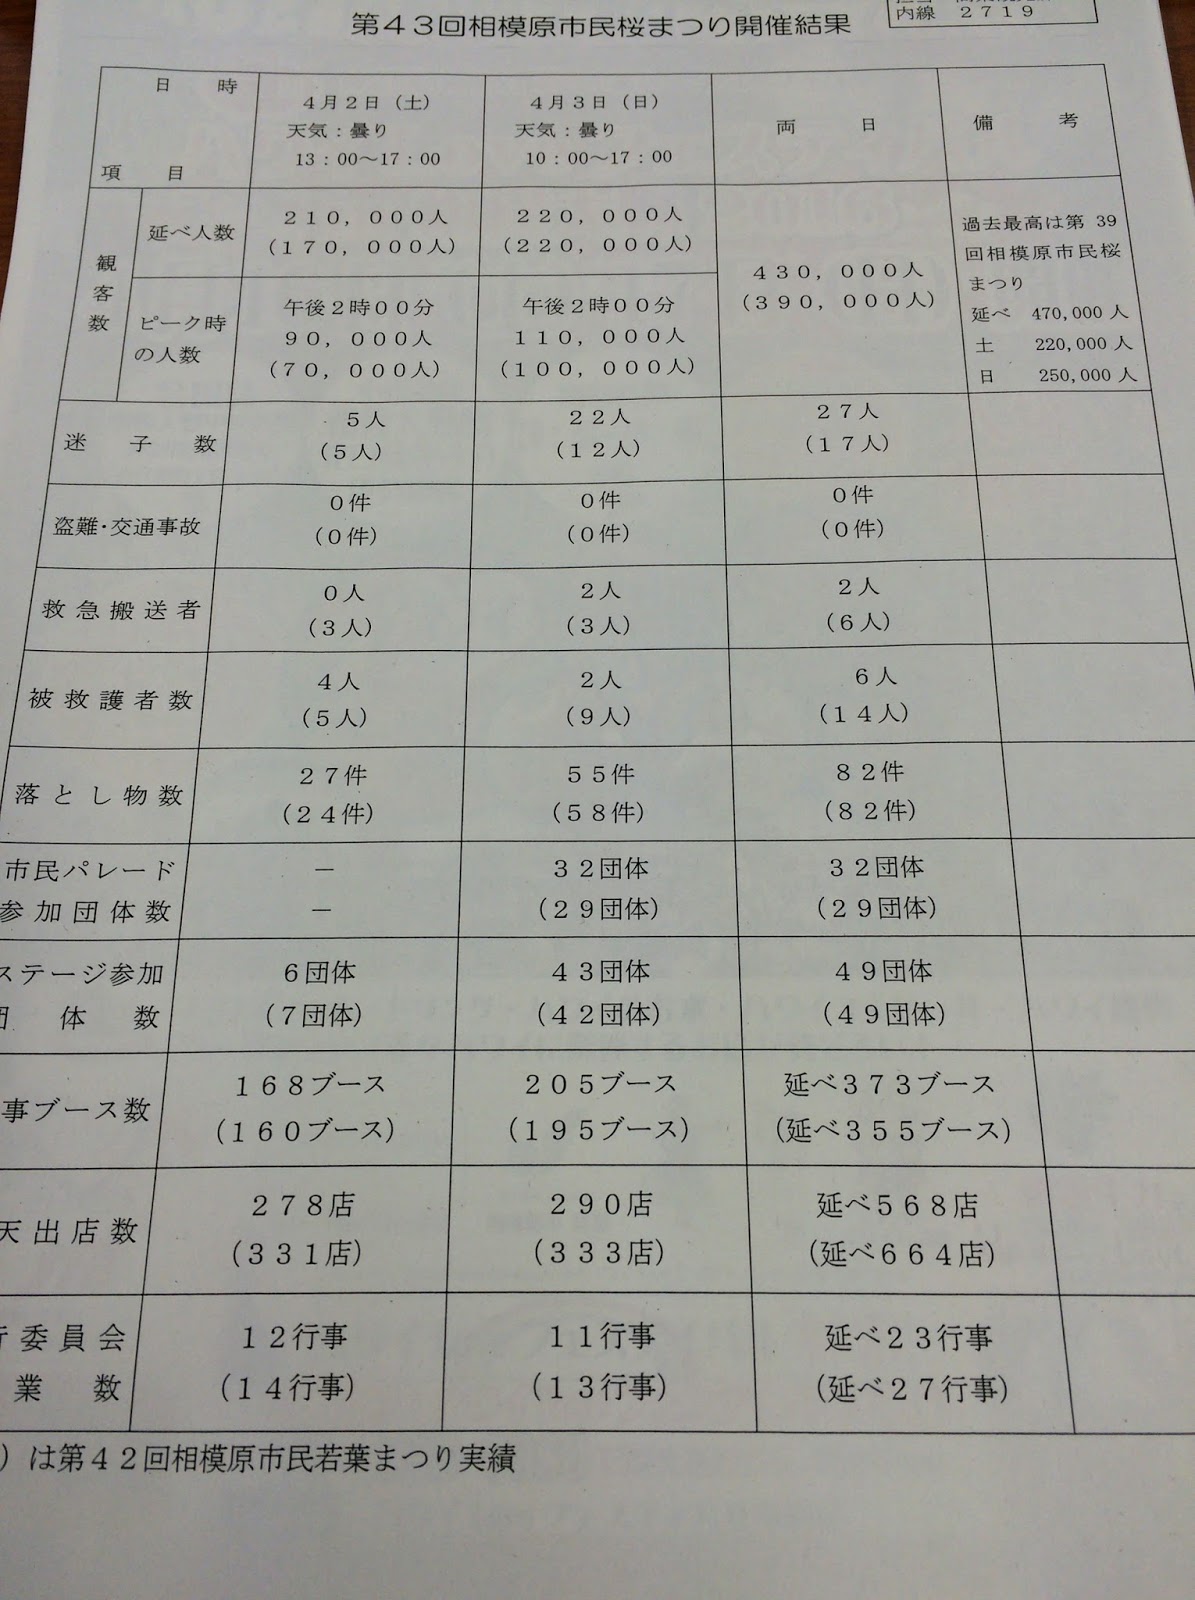 内線 2719
第43回相模原市民桜まつり開催結果
日 時
項 目
4月2日（土）
天気：曇り
13：00～17：00
4月3日（日）
天気：曇り
10：00～17：00
両 日
備 考
観客数
延べ人数
210，000人
（170，000人）
220，000人
（220，000人）
ピーク時
の人数
午後2時00分
90，000人
（70，000人）
午後2時00分
110，000人
（100，000人）
430，000人
（390，000人）
過去最高は第 39
回相模原市民桜
まつり
延べ 470,000 人
土 220,000 人
日 250,000 人
迷 子 数
5人
（5人）
22人
（12人）
27人
（17人）
盗難・交通事故
0件
（0件）
0件
（0件）
0件
（0件）
救急搬送者
0人
（3人）
2人
（3人）
2人
（6人）
被救護者数
4人
（5人）
2人
（9人）
6人
（14人）
落とし物数
27件
（24件）
55件
（58件）
82件
（82件）
市民パレード
参加団体数
－
－
32団体
（29団体）
32団体
（29団体）
ステージ参加
団 体 数
6団体
（7団体）
43団体
（42団体）
49団体
（49団体）
事ブース数
168ブース
（160ブース）
205ブース
（195ブース）
延べ373ブース
（延べ355ブース）
天出店数
278店
（331店）
290店
（333店）
延べ568店
（延べ664店）
行委員会
業 数
12行事
（14行事）
11行事
（13行事）
延べ23行事
（延べ27行事）
）は第42回相模原市民若葉まつり実績